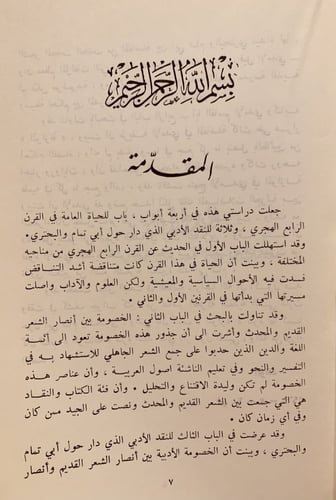 بسم الله الرحمن الرحيم
المقدّمة
جعلت دراستي هذه في أربعة أبواب ، باب للحياة العامة في القرن
الرابع الهجري ، وثلاثة للنقد الأدبي الذي دار حول أبي تمام والبحتري .
وقد استهللت الباب الأول في الحديث عن القرن الرابع الهجري من مناحيه
المختلفة ، وبينت أن الحياة في هذا القرن كانت متناقضة أشد التناقض
فسدت فيه الأحوال السياسية والمعيشية ولكن العلوم والآداب واصلت
مسيرتها التي بدأتها في القرنين الأول والثاني .
وقد تناولت بالبحث في الباب الثاني : الخصومة بين أنصار الشعر
القديم والمحدث وأشرت الى أن جذور هذه الخصومة تعود الى أئمة
اللغة والدين الذين حدبوا على جمع الشعر الجاهلي للاستشهاد به في
التفسير والنحو وفي تعليم الناشئة اصول العربية ، وأن عناصر هذه
الخصومة لم تكن وليدة الاقتناع والتحليل . وأن فئة الكتاب والنقاد
هي التي جمعت بين الشعر القديم والمحدث ونصت على الجيد ممن كان
وفي أي زمان كان .
وقد عرضت في الباب الثالث للنقد الأدبي الذي دار حول أبي تمام
والبحتري ، وبينت أن الخصومة الأدبية بين أنصار الشعر القديم وأنصار
٧